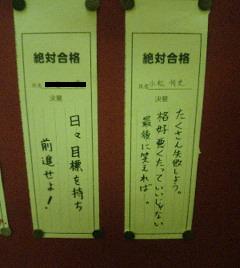 絶対合格
氏名 小松
決意
たくさん失敗しよう。
格好悪くたっていいじゃない
最後に笑えれば。
絶対合格
氏名
決意
日々目標を持ち
前進せよ！